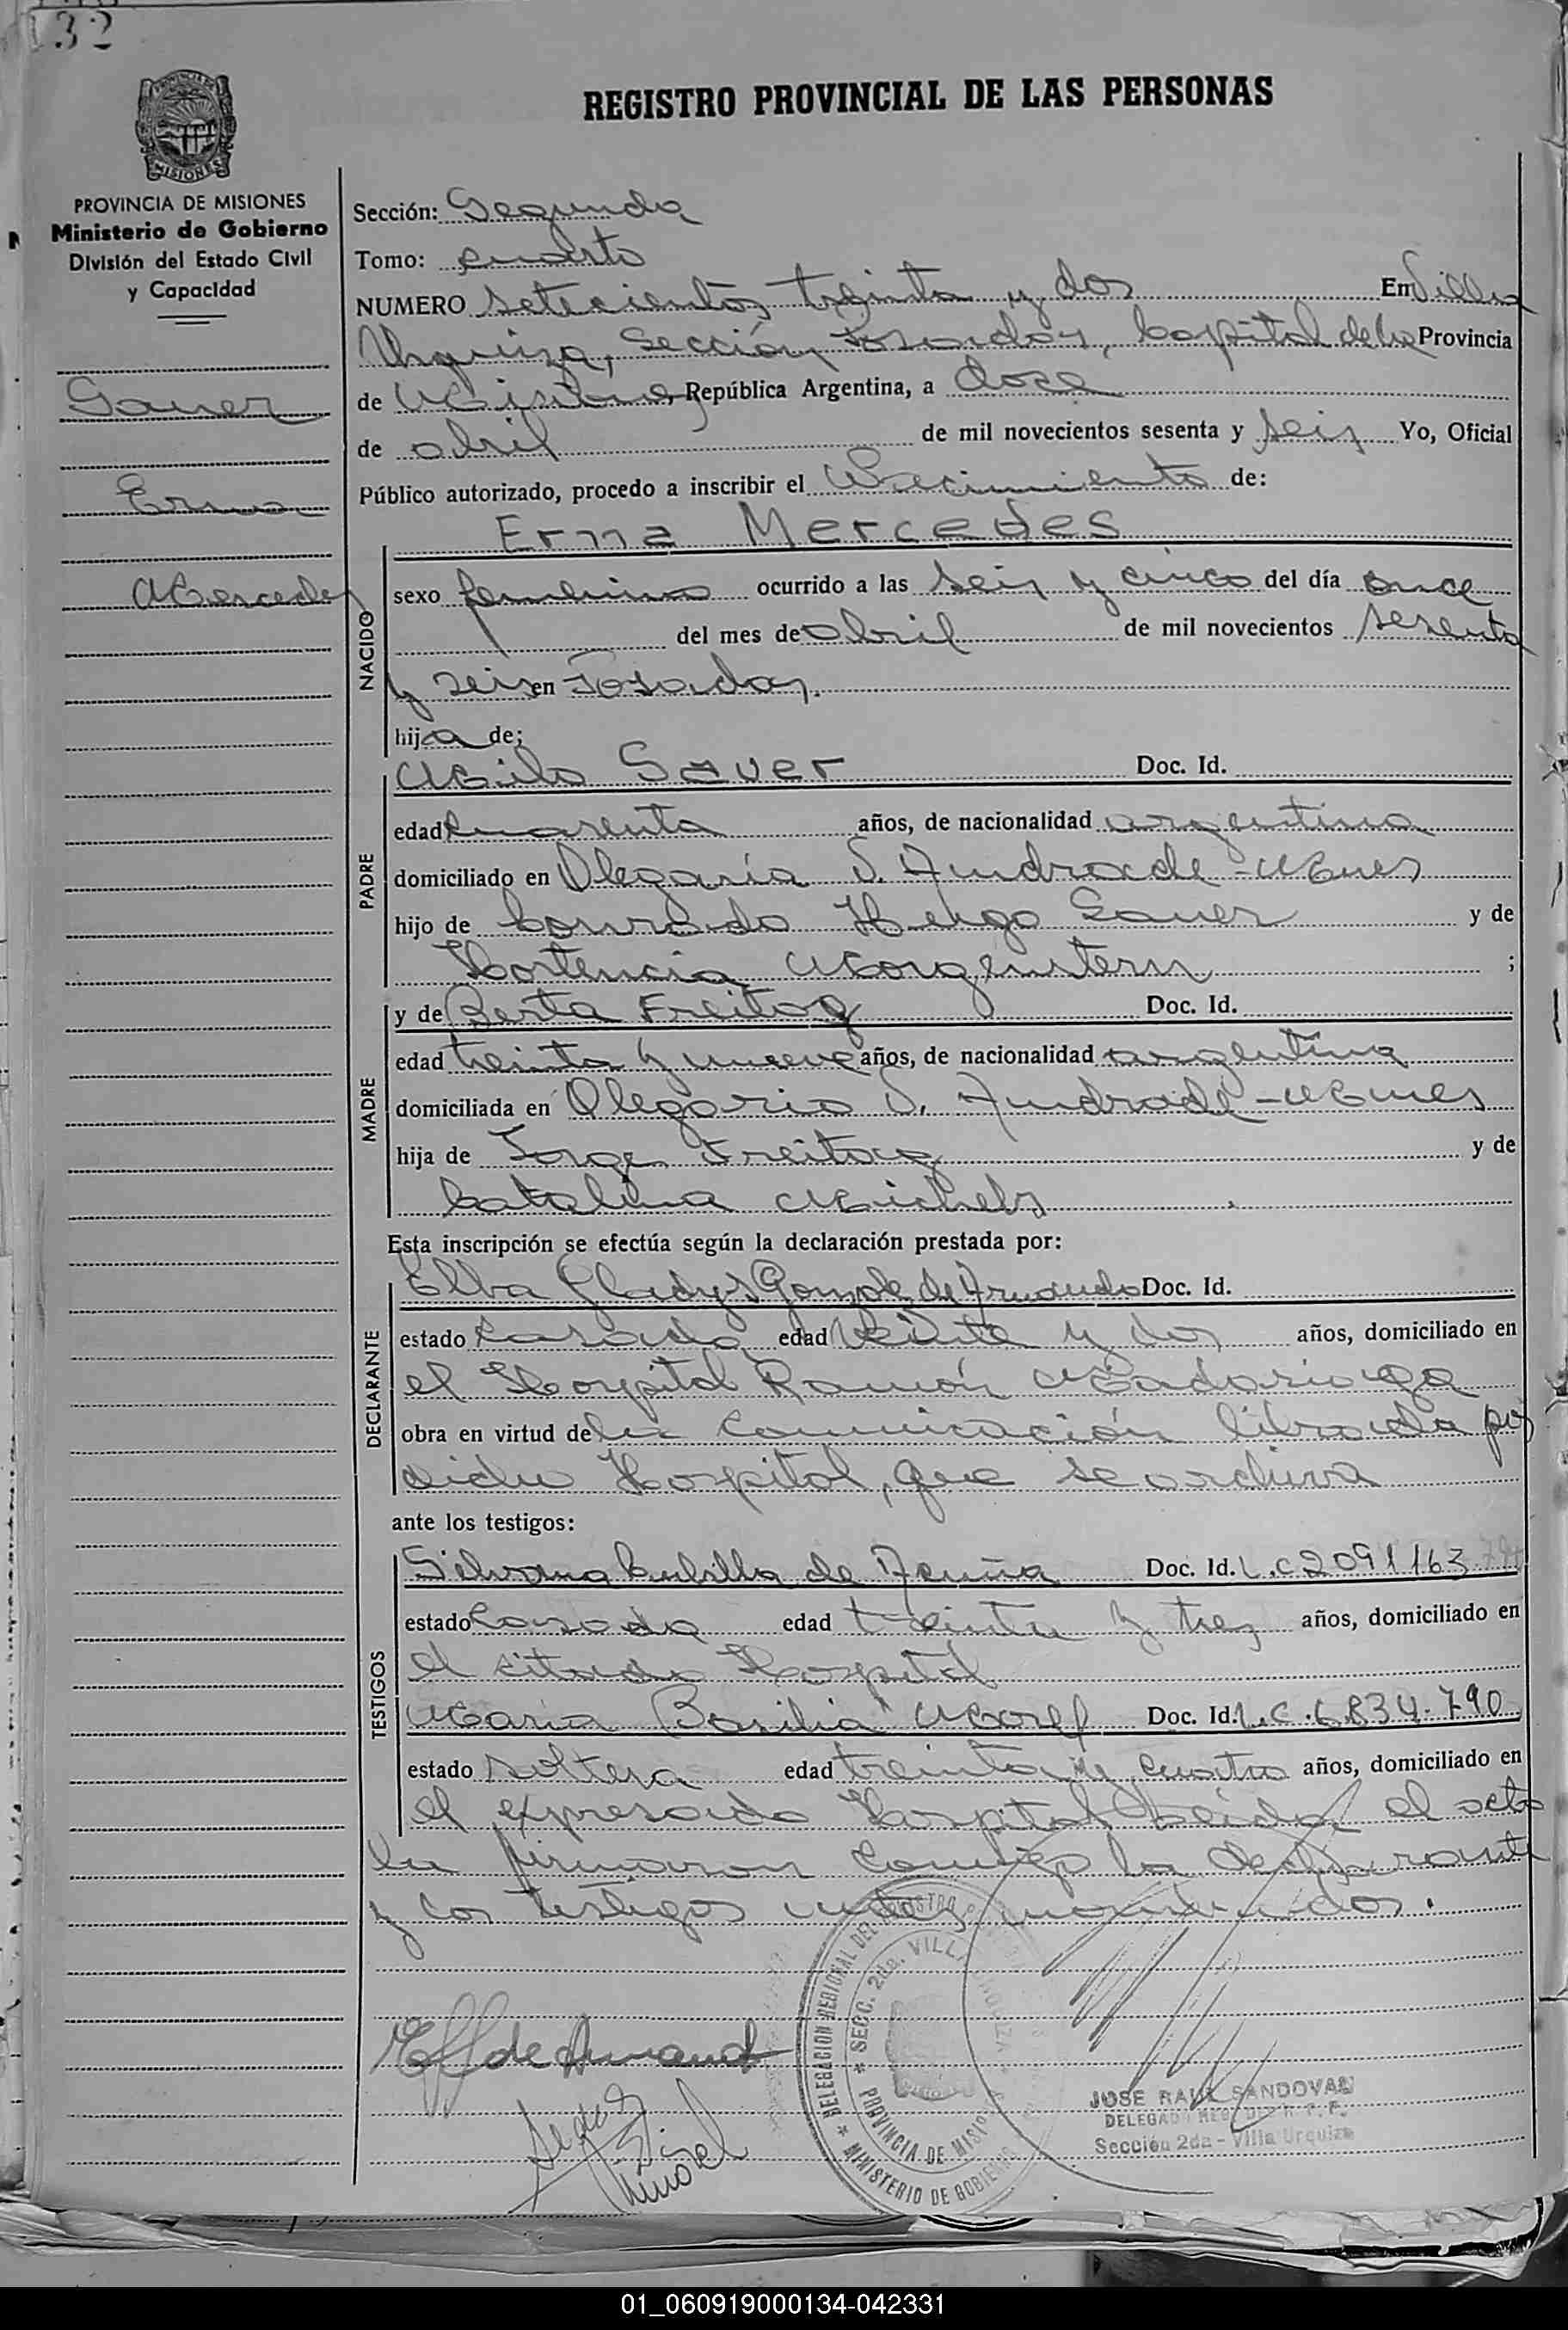 32
REGISTRO PROVINCIAL DE LAS PERSONAS
PROVINCIA DE MISIONES
MISIONES
PROVINCIA DE MISIONES
Ministerio de Gobierno
División del Estado Civil
y Capacidad
Sauer
Erna
Mercedes
Sección: Segunda
Tomo: cuarto
NUMERO setecientos treinta y dos En Villa
Urquiza, Sección Posadas, Capital de la Provincia
de Misiones, República Argentina, a doce
de abril de mil novecientos sesenta y seis Yo, Oficial
Público autorizado, procedo a inscribir el Nacimiento de:
Erna Mercedes
NACIDO
sexo femenino ocurrido a las seis y cinco del día once
del mes de abril de mil novecientos sesenta
y seis en Posadas.
hija de:
PADRE
Milo Sauer Doc. Id.
edad cuarenta años, de nacionalidad argentina
domiciliado en Olegaria V. Andrade-Mnes
hijo de Conrado Hugo Sauer y de
Hortencia Morgenstern ;
MADRE
y de Berta Freitag Doc. Id.
edad treinta y nueve años, de nacionalidad argentina
domiciliada en Olegario V. Andrade-Mnes
hija de Jorge Freitag y de
Catalina Michels
Esta inscripción se efectúa según la declaración prestada por:
DECLARANTE
Elba Gladys de Doc. Id.
estado casada edad veinte y dos años, domiciliado en
el Hospital Ramón Madariaga
obra en virtud de la comunicación librada por
dicho Hospital, que se archiva
ante los testigos:
TESTIGOS
Silvana de Acuña Doc. Id. L.C 2091163
estado casada edad treinta y tres años, domiciliado en
el citado Hospital
Maria Basilia Morel Doc. Id. L.C. 6.834.790
estado soltera edad treinta y cuatro años, domiciliado en
el expresado Hospital Leida el acta
la firmaron conmigo la declarante
y los testigos antes nombrados.
DELEGACION REGIONAL DEL REGISTRO
* SECC. 2da. VILLA URQUIZA *
PROVINCIA DE MISIONES
* MINISTERIO DE GOBIERNO
JOSE RAUL SANDOVAL
DELEGADO
Sección 2da - Villa Urquiza
01_060919000134-042331